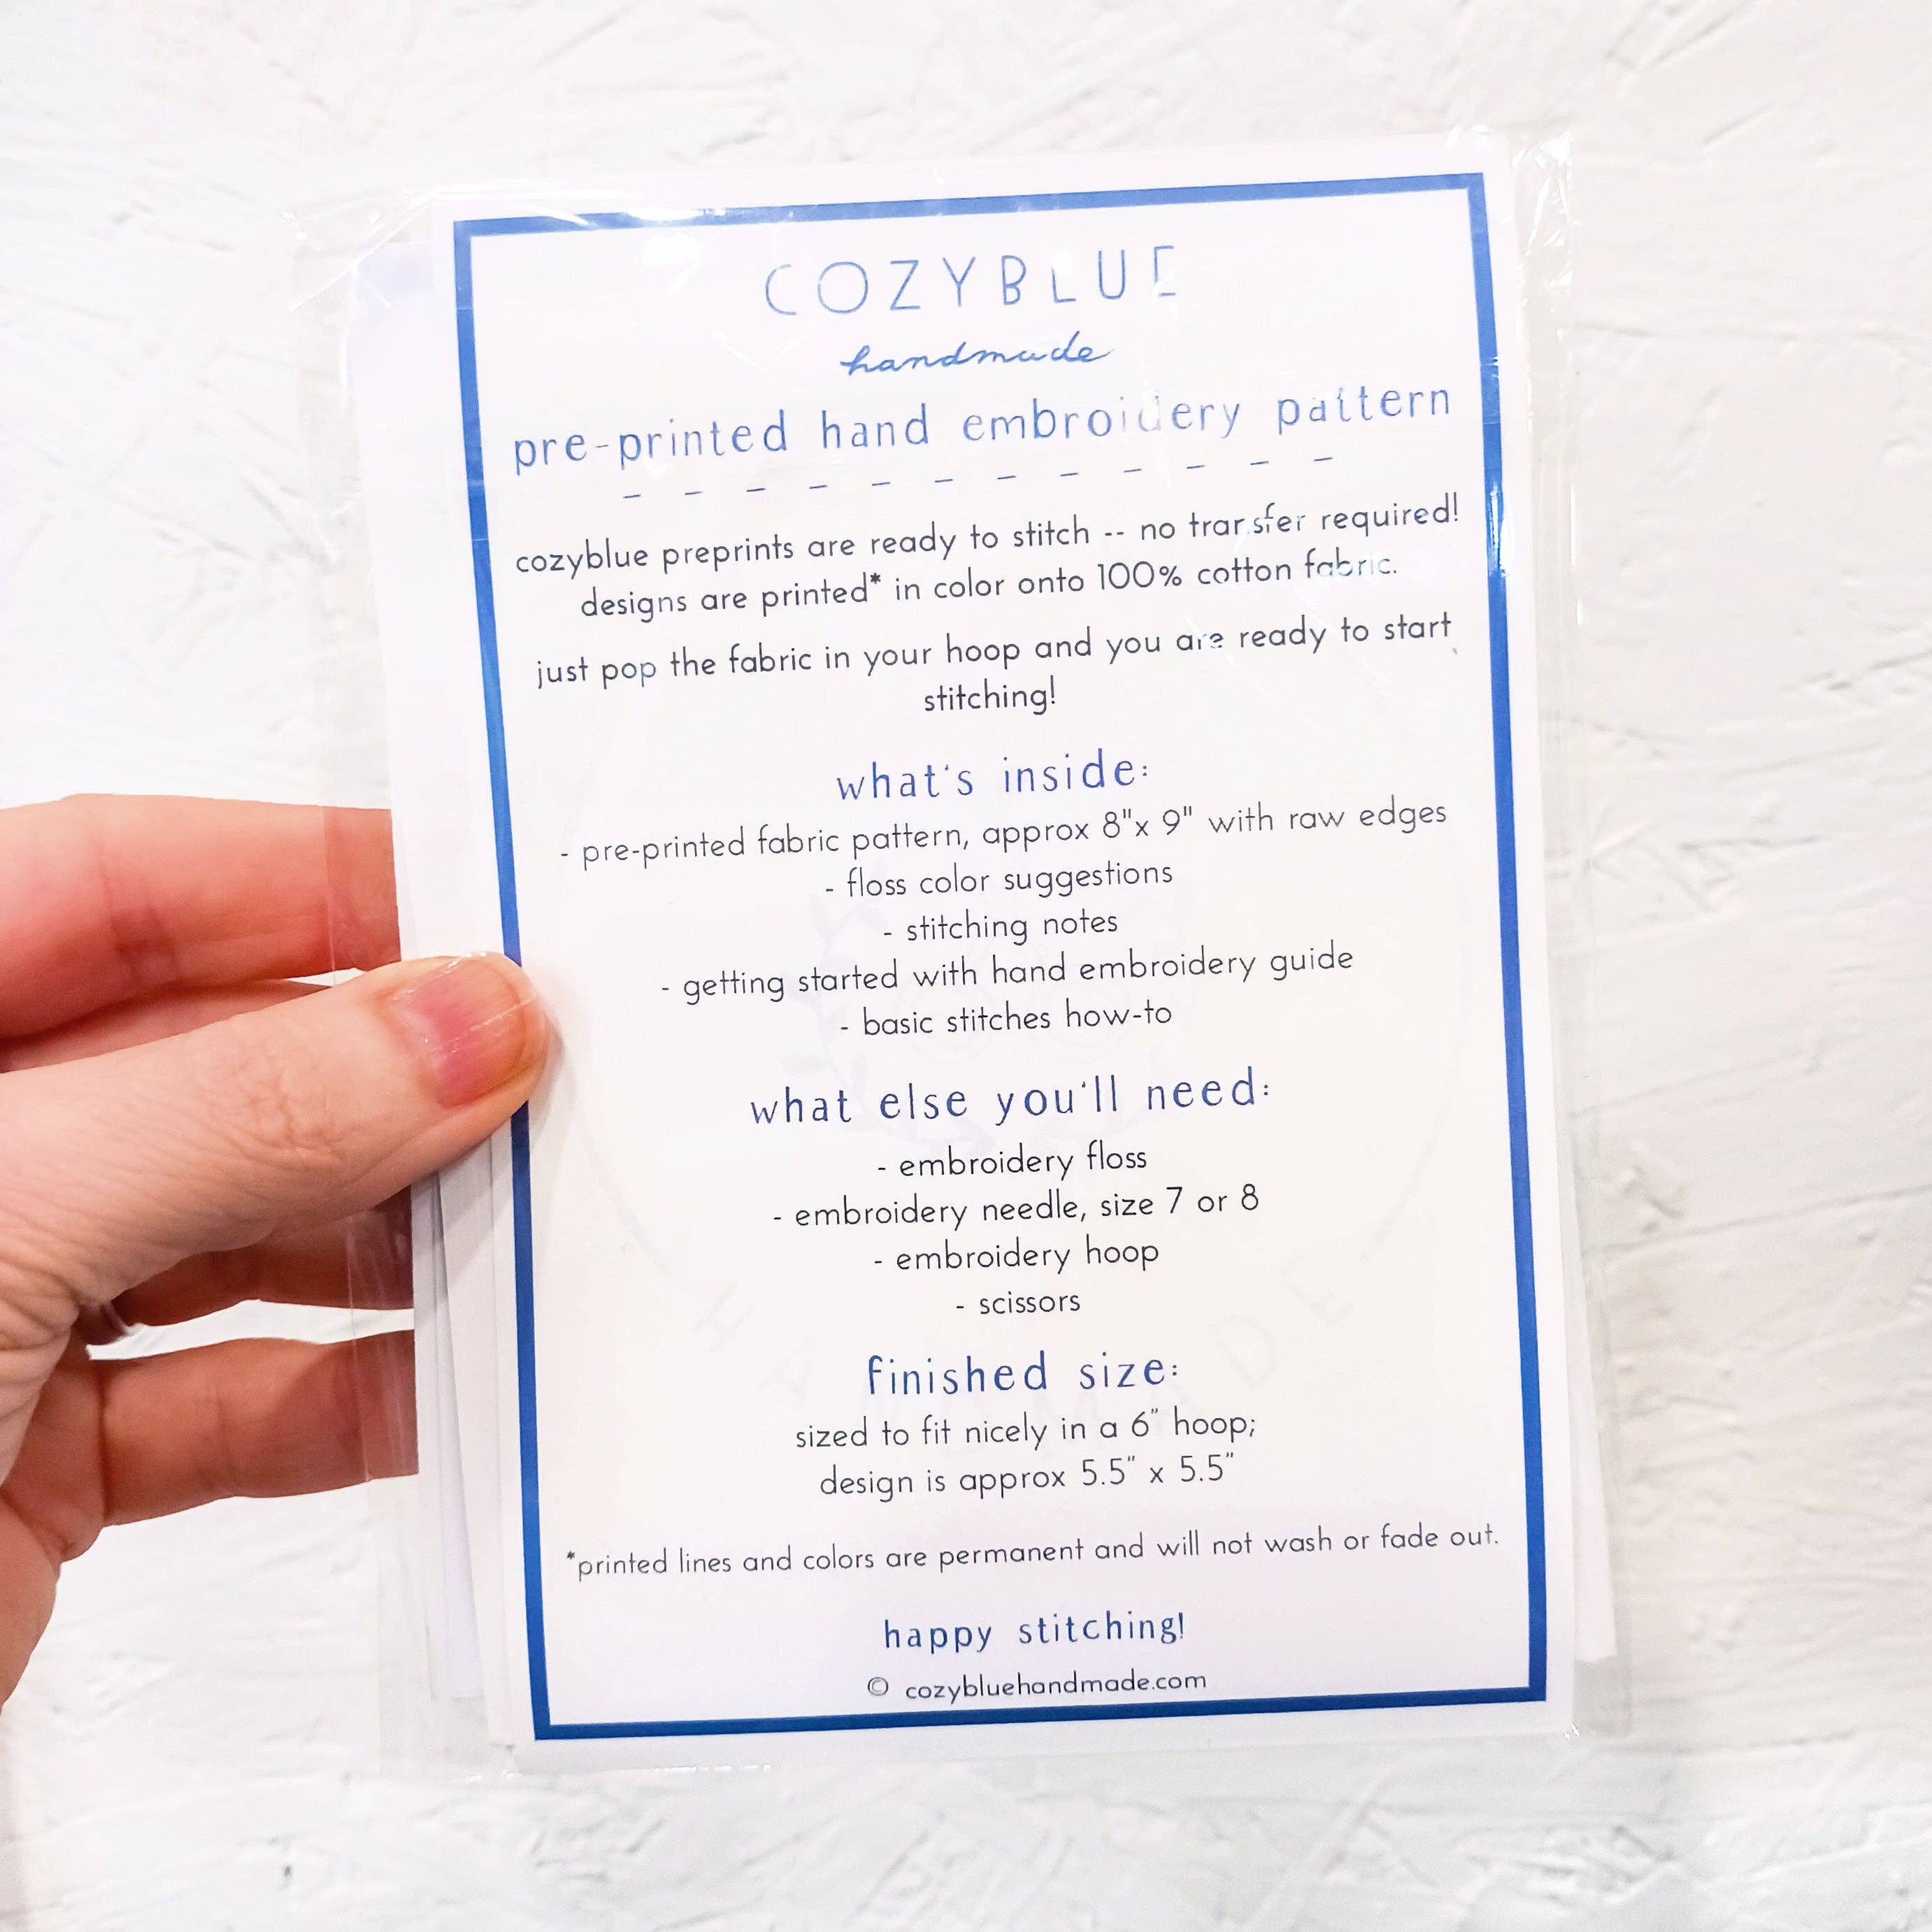 COZYBLUE
handmade
pre-printed hand embroidery pattern
cozyblue preprints are ready to stitch -- no transfer required!
designs are printed* in color onto 100% cotton fabric.
just pop the fabric in your hoop and you are ready to start
stitching!
what's inside:
- pre-printed fabric pattern, approx 8"x 9" with raw edges
- floss color suggestions
- stitching notes
- getting started with hand embroidery guide
- basic stitches how-to
what else you'll need:
- embroidery floss
- embroidery needle, size 7 or 8
- embroidery hoop
- scissors
finished size:
sized to fit nicely in a 6" hoop;
design is approx 5.5" x 5.5"
*printed lines and colors are permanent and will not wash or fade out.
happy stitching!
© cozybluehandmade.com